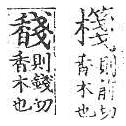 棧
則前切
香木也
馢
則錢切
香木也